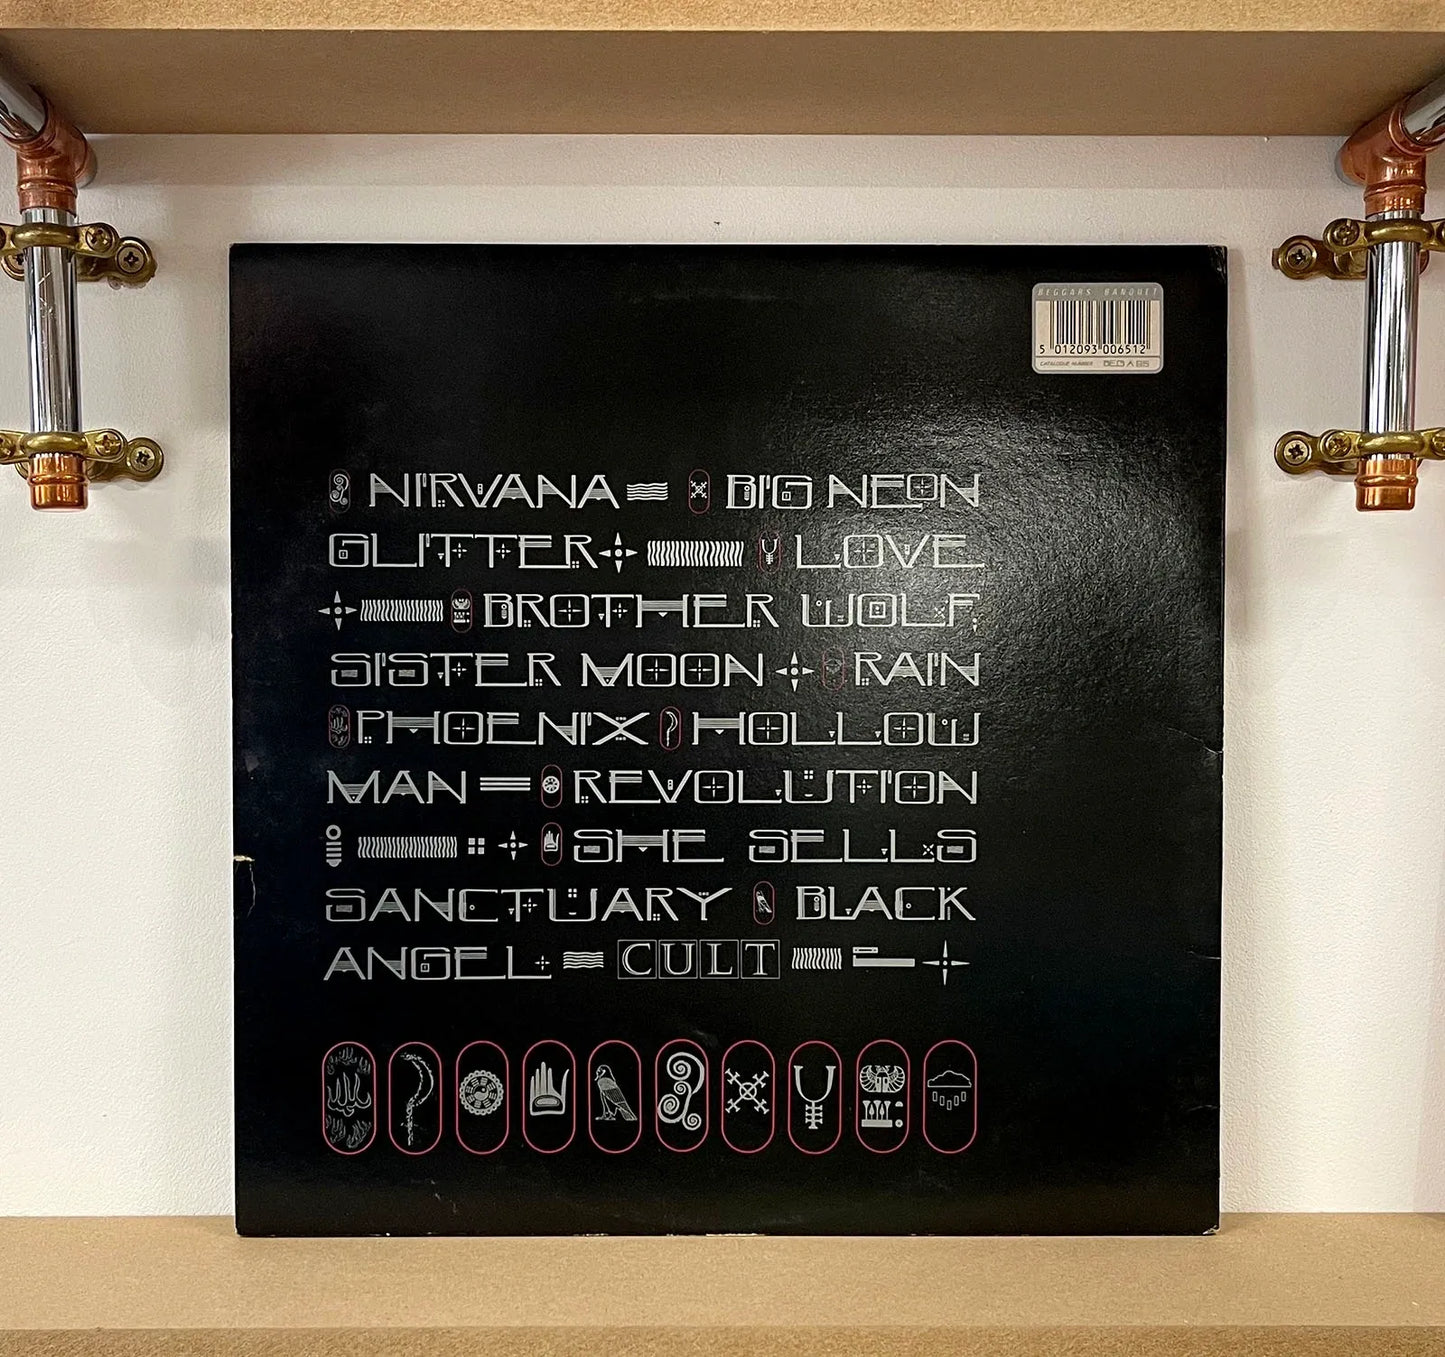 BEGGARS BANQUET
5 012093 006512
CATALOGUE NUMBER BEGA 65
NIRVANA BIG NEON
GLITTER LOVE
BROTHER WOLF,
SISTER MOON RAIN
PHOENIX HOLLOW
MAN REVOLUTION
SHE SELLS
SANCTUARY BLACK
ANGEL CULT